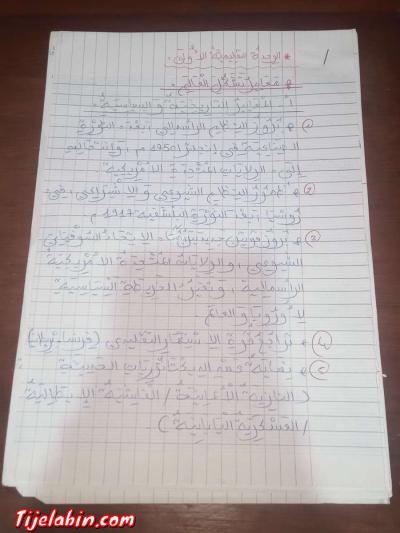 * الوحدة التعليمية الأولى: 1
* معايير تشكل العالم:
أ. المعايير التاريخية والسياسية:
1) * بروز النظام الرأسمالي، بعد الثورة
الصناعية في إنجلترا 1750 م، وانتقاله
إلى الولايات المتحدة الأمريكية.
2) * ظهور النظام الشيوعي والاشتراكي، في
روسيا بعد الثورة البلشفية 1917 م.
3) * بروز قوتين جديدتين: الاتحاد السوفياتي
الشيوعي، والولايات المتحدة الأمريكية
الرأسمالية، وتغير الخريطة السياسية
لأوروبا والعالم.
4) * تراجع قوة الاستعمار التقليدي (فرنسا - بريطا)
5) * نهاية قمة الديكتاتوريات الحديثة
(النازية الألمانية / الفاشية الإيطالية
/ العسكرية اليابانية).
Tijelabin.com